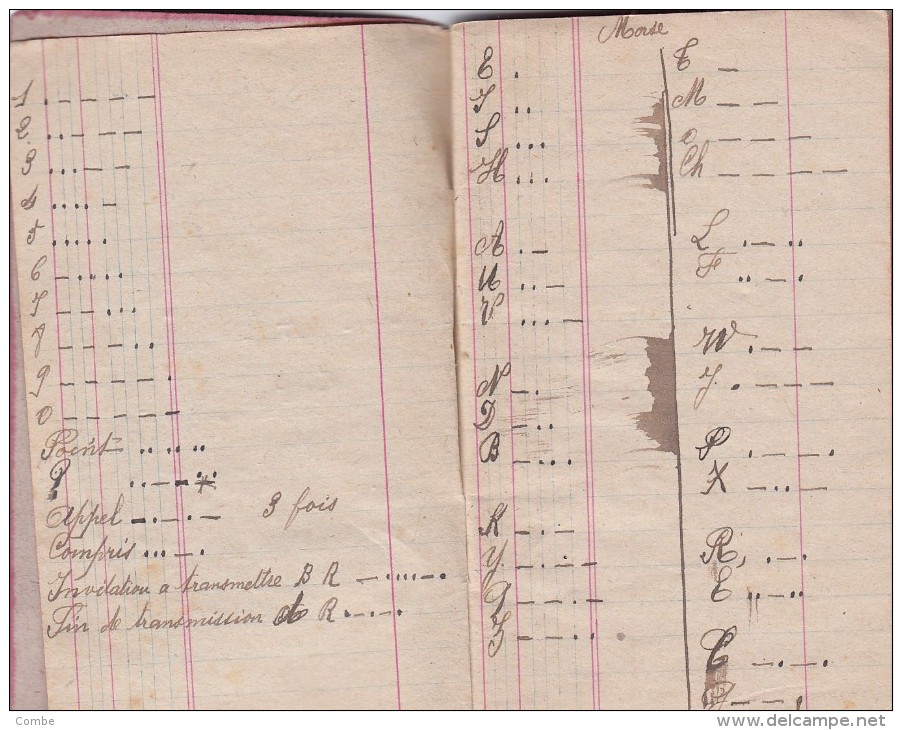 1 . — — — —
2 . . — — —
3 . . . — —
4 . . . . —
5 . . . . .
6 — . . . .
7 — — . . .
8 — — — . .
9 — — — — .
0 — — — — —
Point .. .. ..
? .. — — ..
Appel — . — . — 3 fois
Compris ... — .
Invitation a transmettre B R — ... . — .
Fin de transmission R . — .
Morse
E .
I ..
S ...
H ....
A . —
U .. —
V ... —
N — .
D — ..
B — ...
K — . —
Y — . — —
Q — — . —
Z — — ..
T —
M — —
O — — —
Ch — — — —
L . — ..
F .. — .
W . — —
J . — — —
P . — — .
X — .. —
R . — .
É .. — ..
C — . — .
— — .
Combe
www.delcampe.net